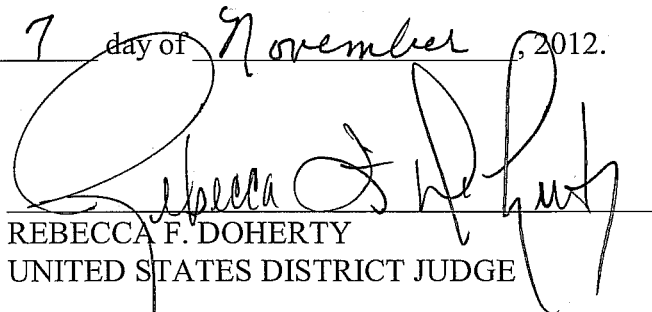 7 day of November, 2012.
Rebecca F Doherty
REBECCA F. DOHERTY
UNITED STATES DISTRICT JUDGE